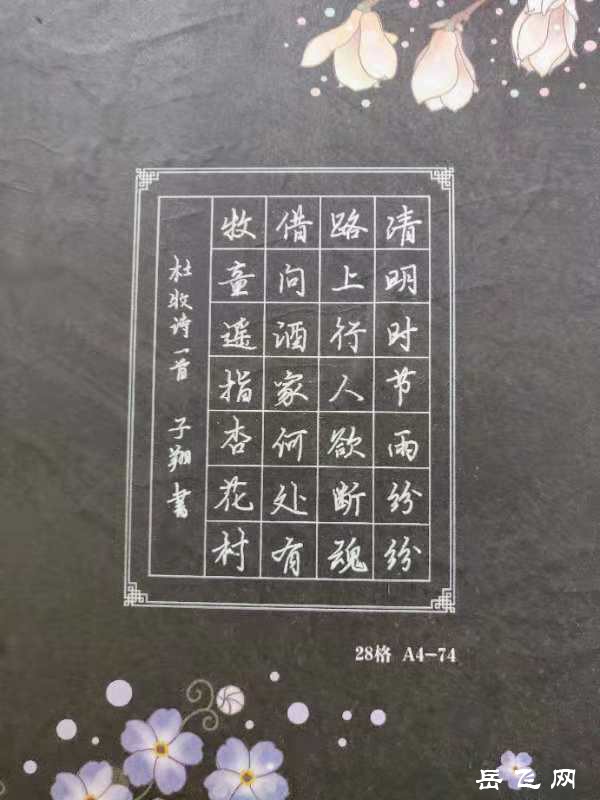 清明时节雨纷纷
路上行人欲断魂
借问酒家何处有
牧童遥指杏花村
杜牧诗一首 子翔书
28格 A4-74
岳飞网